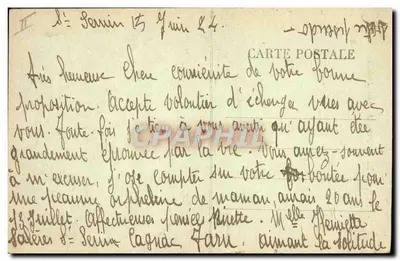 II
St Sernin 15 Juin 24.
CARTE POSTALE
Très heureuse chère de votre bonne
proposition. Accepte volontier d'échanger vues avec
vous. Toute-fois à vous avertir qu'ayant été
grandement éprouvée par la vie. Vous aurez souvent
à m'excuser, j'ose compter sur votre bontée pour
une pauvre orpheline de maman, aurais 20 ans le
Juillet. Affectueuses pensées Ninette. Melle Henriette
St Sernin Cagnac Tarn, aimant la solitude